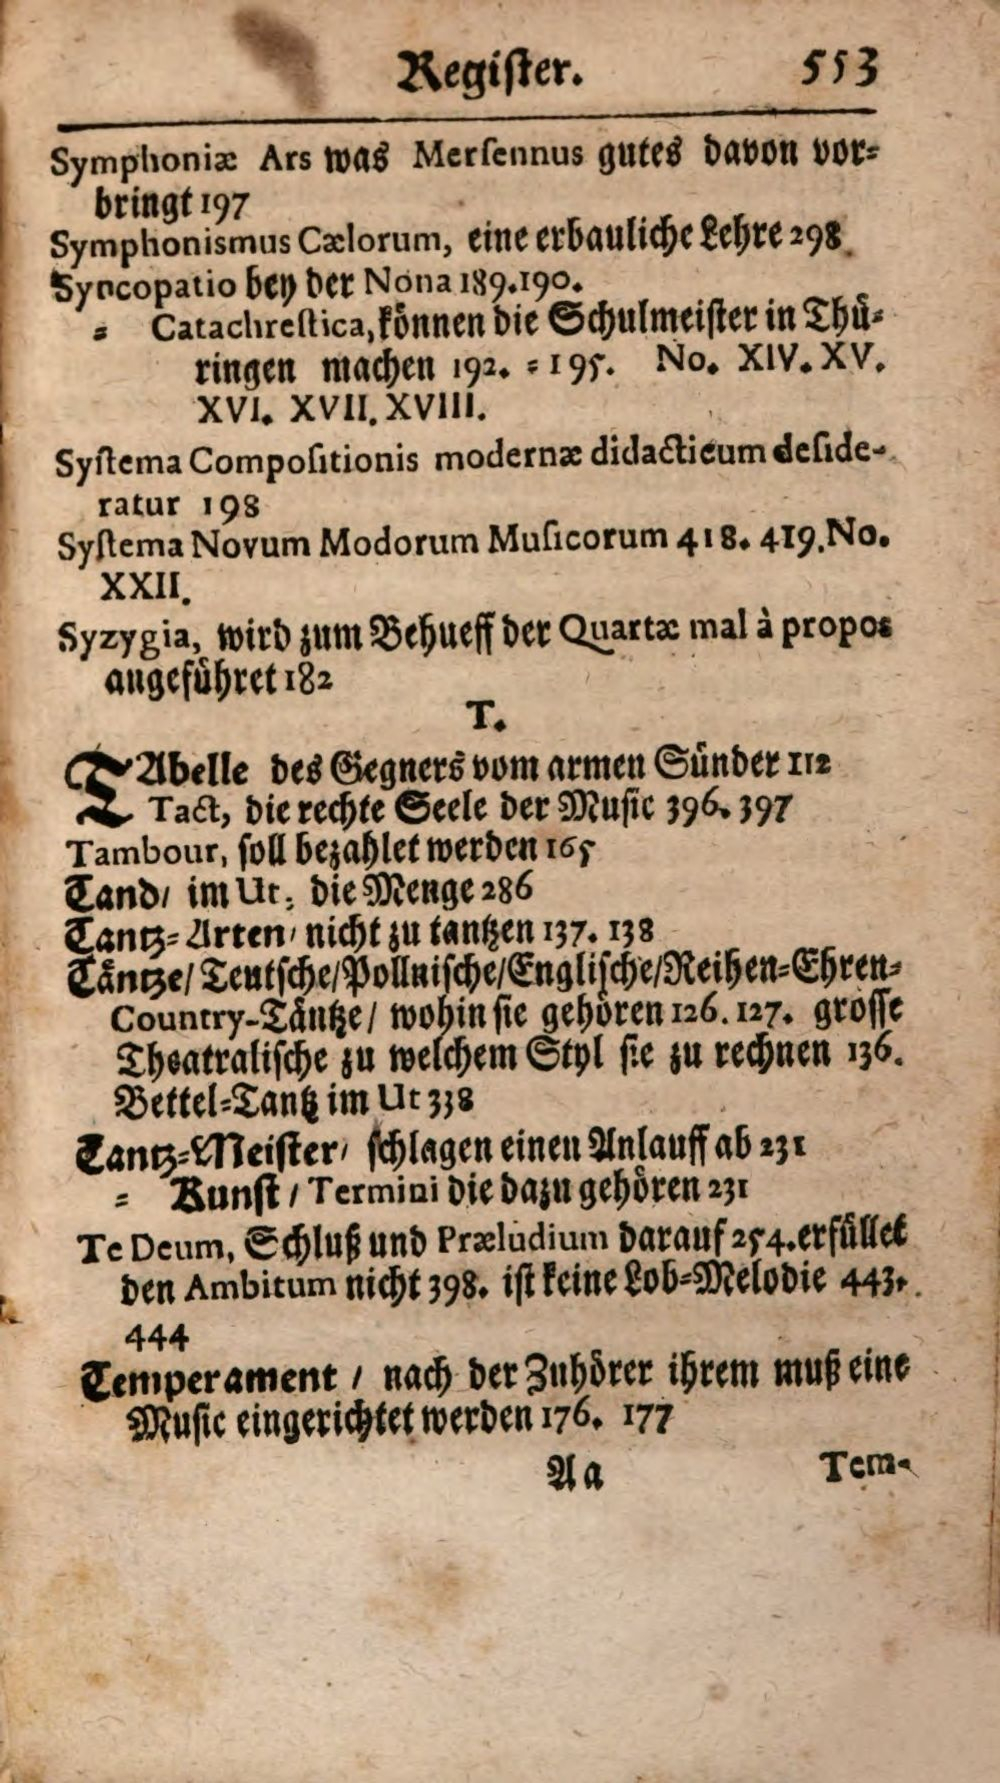 Regiſter. 553
Symphoniæ Ars was Merſennus gutes davon vor⸗
bringt 197
Symphonismus Cælorum, eine erbauliche Lehre 298.
Syncopatio bey der Nona 189.190.
⸗ Catachreſtica, können die Schulmeiſter in Thü⸗
ringen machen 192. ⸗ 195. No. XIV. XV.
XVI. XVII. XVIII.
Syſtema Compoſitionis modernæ didacticum deſide-
ratur 198
Syſtema Novum Modorum Muſicorum 418. 419. No.
XXII.
Syzygia, wird zum Behueff der Quartæ mal à propos
angeführet 182
T.
TAbelle des Gegners vom armen Sünder 112
Tact, die rechte Seele der Muſic 396. 397
Tambour, ſoll bezahlet werden 165
Tand/ im Ut, die Menge 286
Tantz⸗Arten/ nicht zu tantzen 137. 138
Täntze/ Teutſche/ Pollniſche/ Engliſche/ Reihen⸗Ehren⸗
Country-Täntze/ wohin ſie gehören 126. 127. groſſe
Theatraliſche zu welchem Styl ſie zu rechnen 136.
Bettel⸗Tantz im Ut 338
Tantz⸗Meiſter/ ſchlagen einen Anlauff ab 231
⸗ Kunſt / Termini die dazu gehören 231
Te Deum, Schluß und Præludium darauf 254. erfüllet
den Ambitum nicht 398. iſt keine Lob⸗Melodie 443.
444
Temperament / nach der Zuhörer ihrem muß eine
Muſic eingerichtet werden 176. 177
Aa Tem-